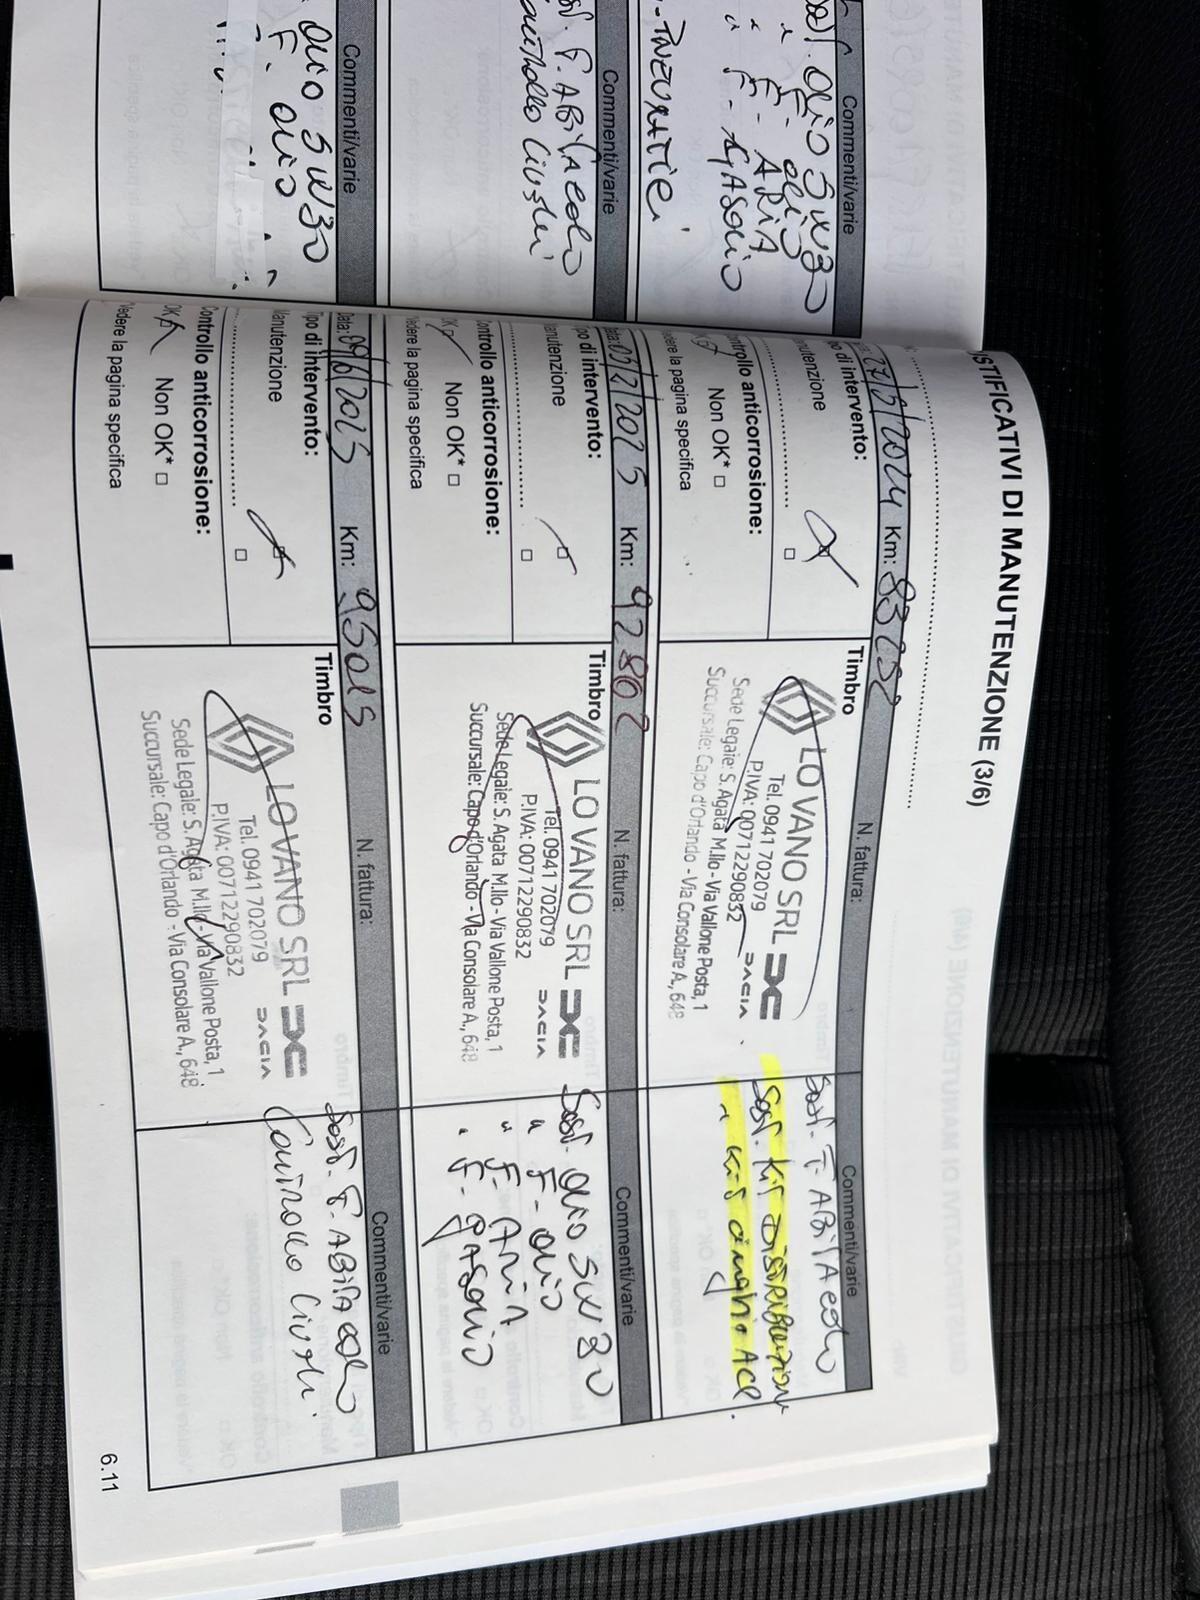 Commenti/varie
olio 5W30
" F. olio
" F. ARIA
" F. GASOLIO
PNEUMATICI
Commenti/varie
F. ABITACOLO
Controllo livelli
Commenti/varie
olio 5W30
F. olio
STIFICATIVI DI MANUTENZIONE (3/6)
/2024 Km:
N. fattura:
Commenti/varie
po di intervento:
nutenzione
ntrollo anticorrosione:
Non OK* □
dere la pagina specifica
Timbro
LO VANO SRL
DACIA
Tel. 0941 702079
P.IVA: 00712290832
Sede Legale: S. Agata M.llo - Via Vallone Posta, 1
Succursale: Capo d'Orlando - Via Consolare A., 648
Sost. F. ABITACOLO
Sost. Kit DISTRIBUZIONE
" Kit cinghia ACC.
ata: /2/2025 Km: 92802
N. fattura:
Commenti/varie
po di intervento:
anutenzione
ontrollo anticorrosione:
OK Non OK* □
edere la pagina specifica
Timbro
LO VANO SRL
DACIA
Tel. 0941 702079
P.IVA: 00712290832
Sede Legale: S. Agata M.llo - Via Vallone Posta, 1
Succursale: Capo d'Orlando - Via Consolare A., 648
Sost. olio 5W30
" F. olio
" F. ARIA
" F. GASOLIO
Data: 09/6/2025 Km: 95015
N. fattura:
Commenti/varie
ipo di intervento:
Manutenzione
Controllo anticorrosione:
OK Non OK* □
Vedere la pagina specifica
Timbro
LO VANO SRL
DACIA
Tel. 0941 702079
P.IVA: 00712290832
Sede Legale: S. Agata M.llo - Via Vallone Posta, 1
Succursale: Capo d'Orlando - Via Consolare A., 648
Sost. F. ABITACOLO
Controllo livelli
6.11